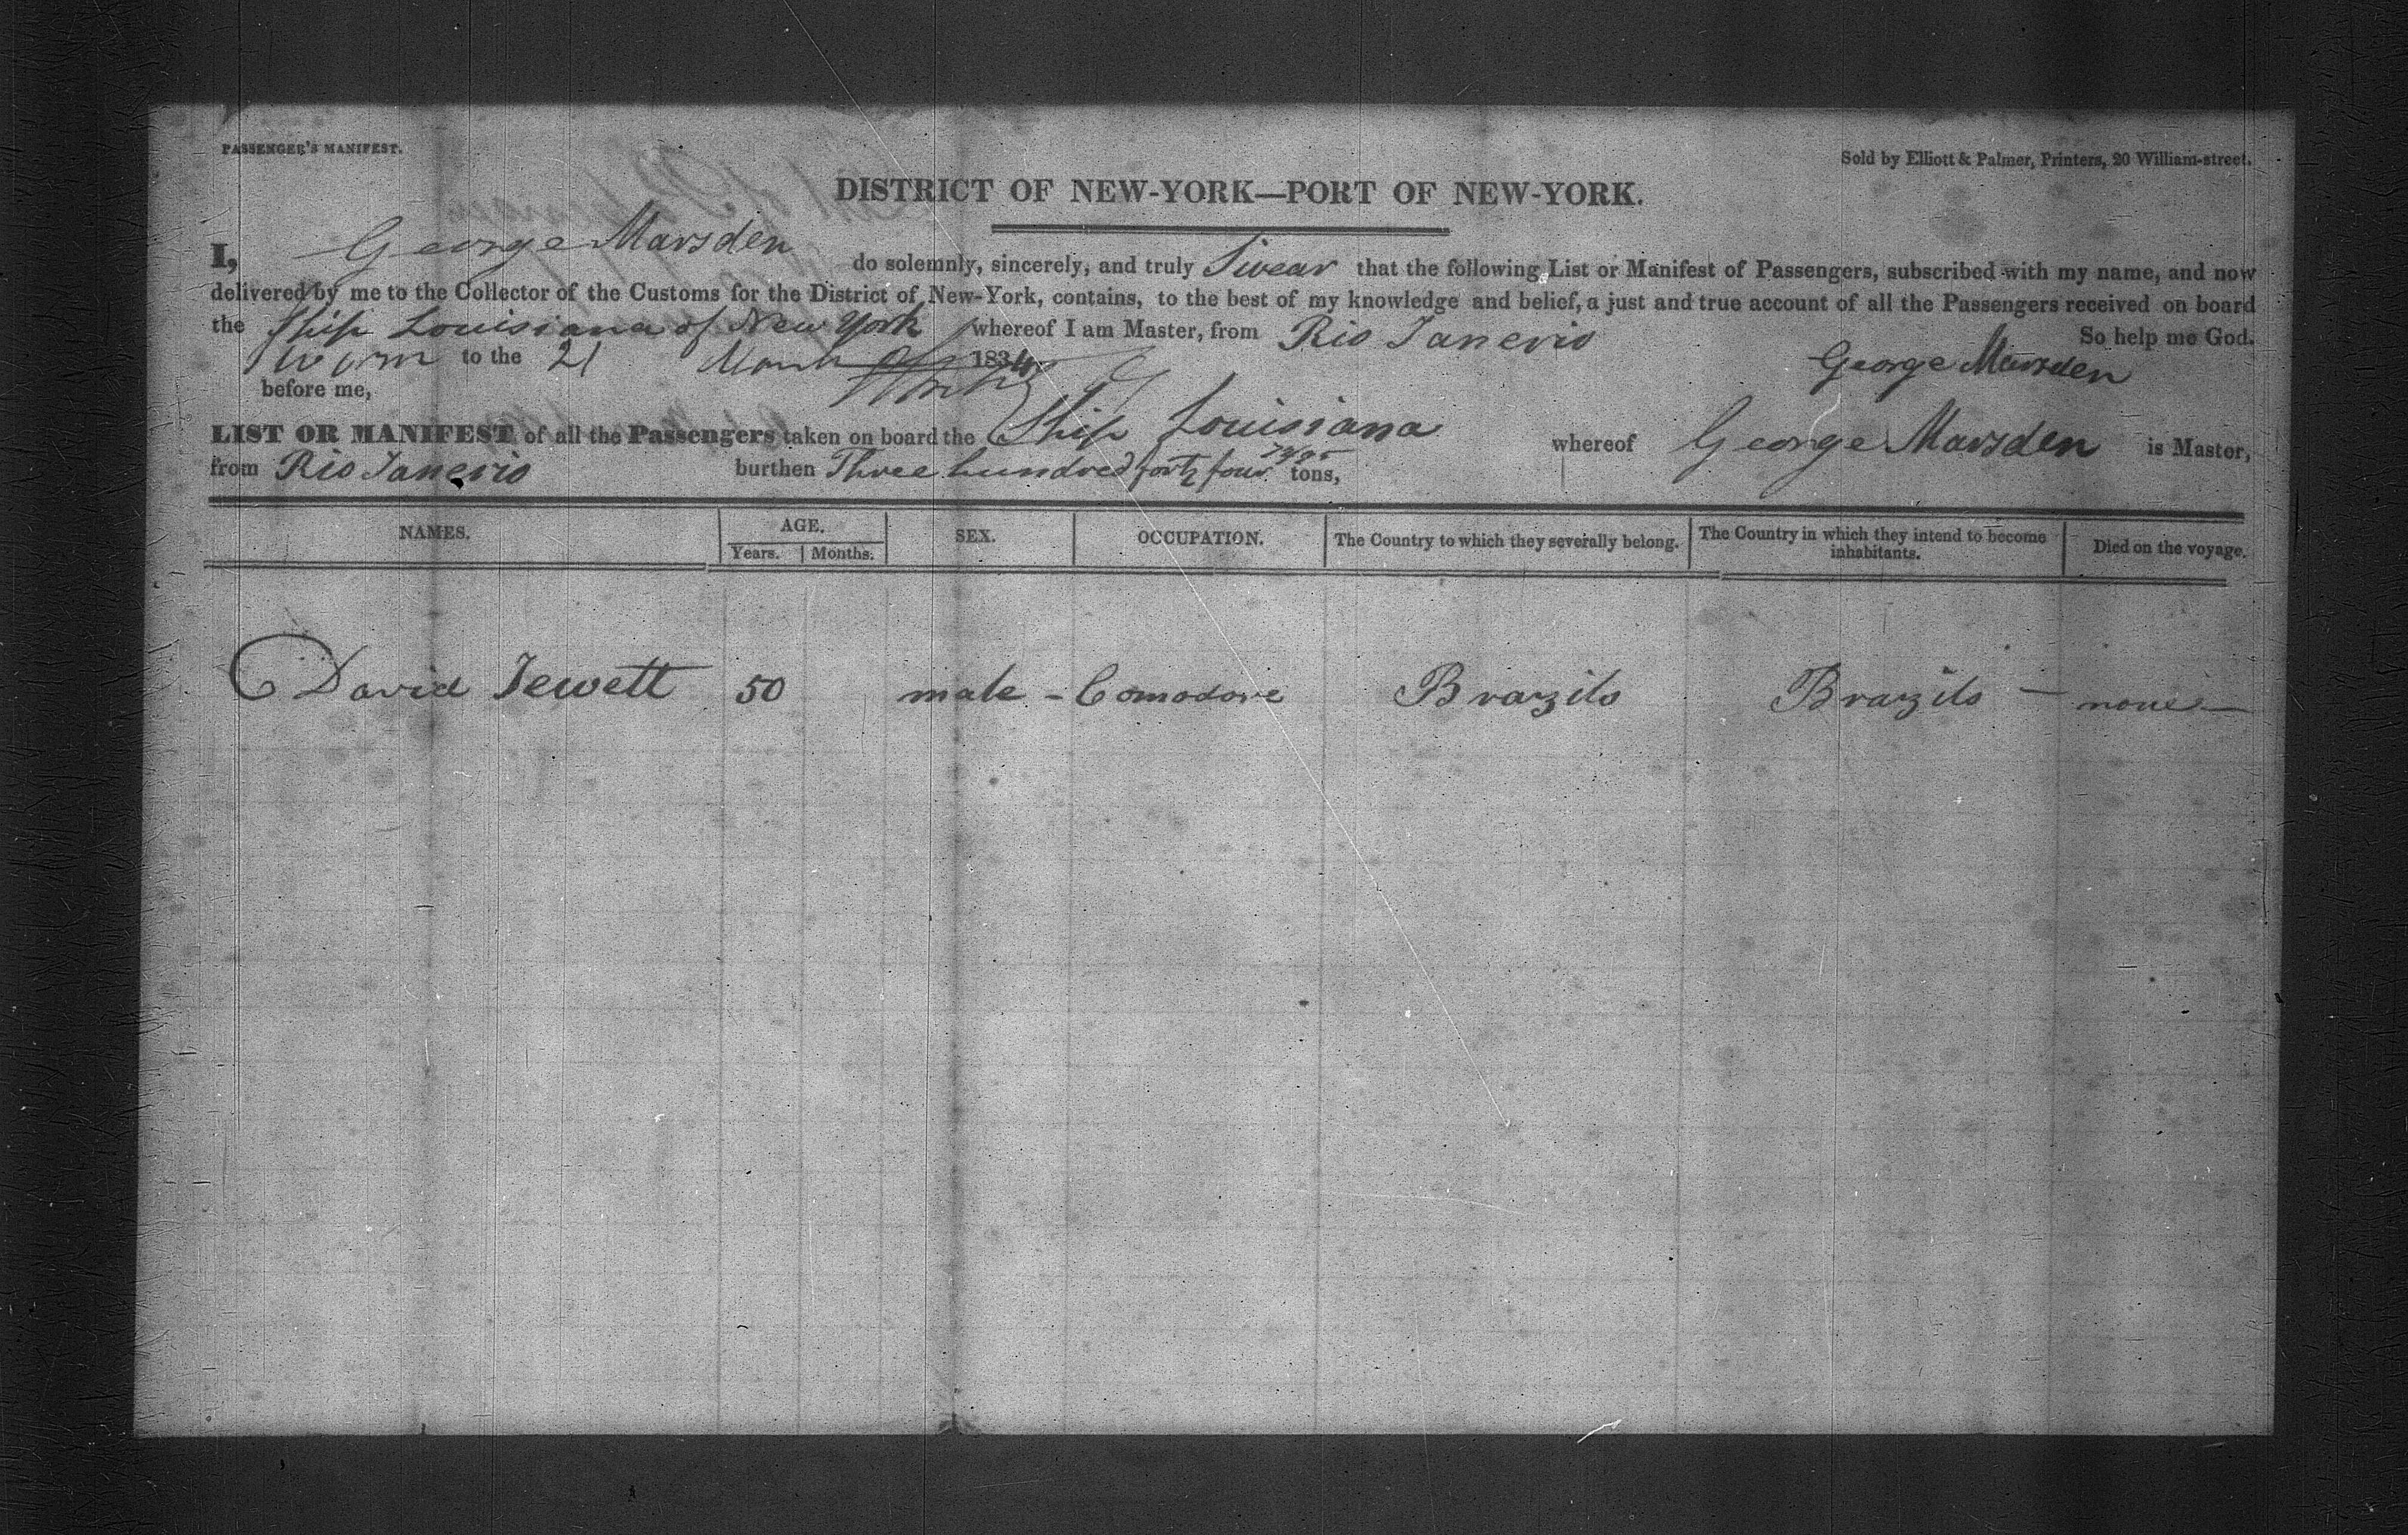 PASSENGER'S MANIFEST.
Sold by Elliott & Palmer, Printers, 20 William-street.
DISTRICT OF NEW-YORK—PORT OF NEW-YORK.
I, George Marsden do solemnly, sincerely, and truly Swear that the following List or Manifest of Passengers, subscribed with my name, and now
delivered by me to the Collector of the Customs for the District of New-York, contains, to the best of my knowledge and belief, a just and true account of all the Passengers received on board
the Ship Louisiana of New York whereof I am Master, from Rio Janerio So help me God.
Sworn to the 21 March 1834 George Marsden
before me,
LIST OR MANIFEST of all the Passengers taken on board the Ship Louisiana whereof George Marsden is Master,
from Rio Janerio burthen Three hundred forty four tons,
NAMES. AGE. SEX. OCCUPATION. The Country to which they severally belong. The Country in which they intend to become inhabitants. Died on the voyage.
Years. Months.
David Jewett 50 male - Comodore Brazils Brazils — none —